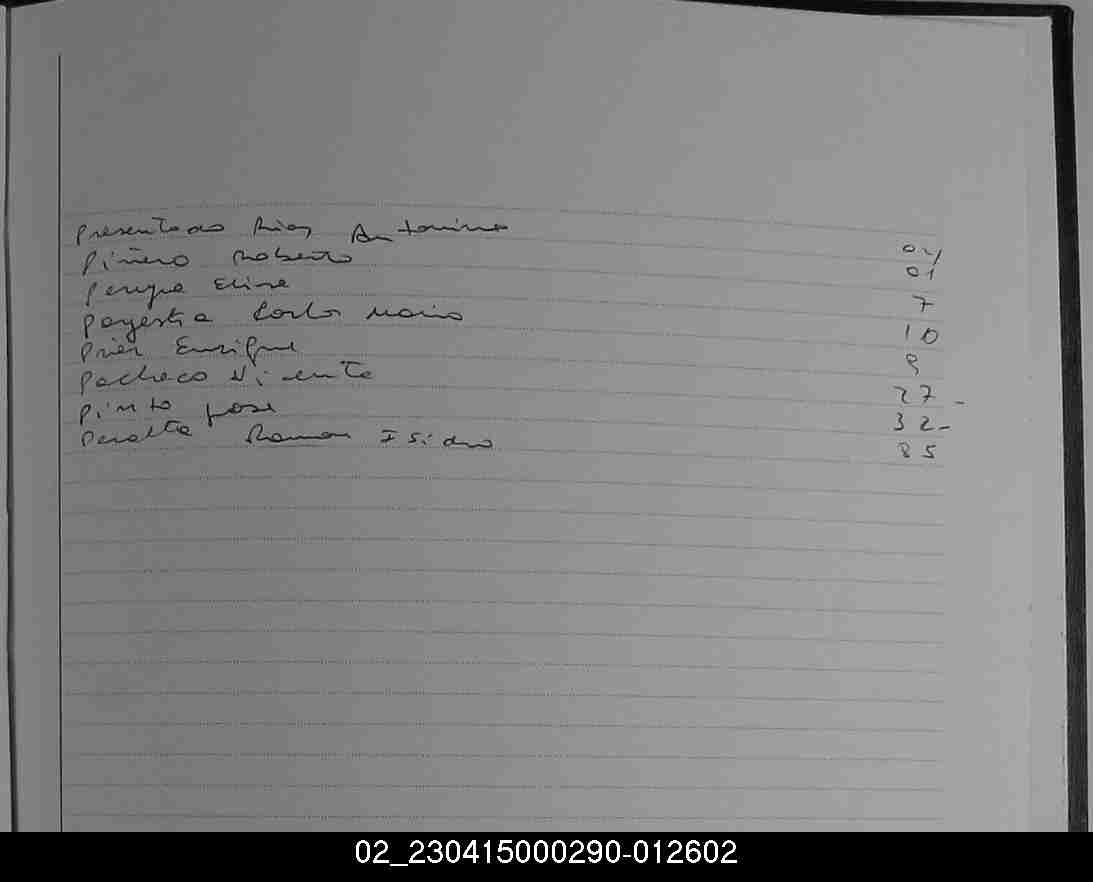 Presentado Rios Antonino 04
Piñero Roberto 01
Pereyra Elina 7
Payestra Carlos Mario 10
Prier Enrique 9
Pacheco Vicente 27 -
Pinto Jose 32 -
Peralta Ramon Isidro 85
02_230415000290-012602